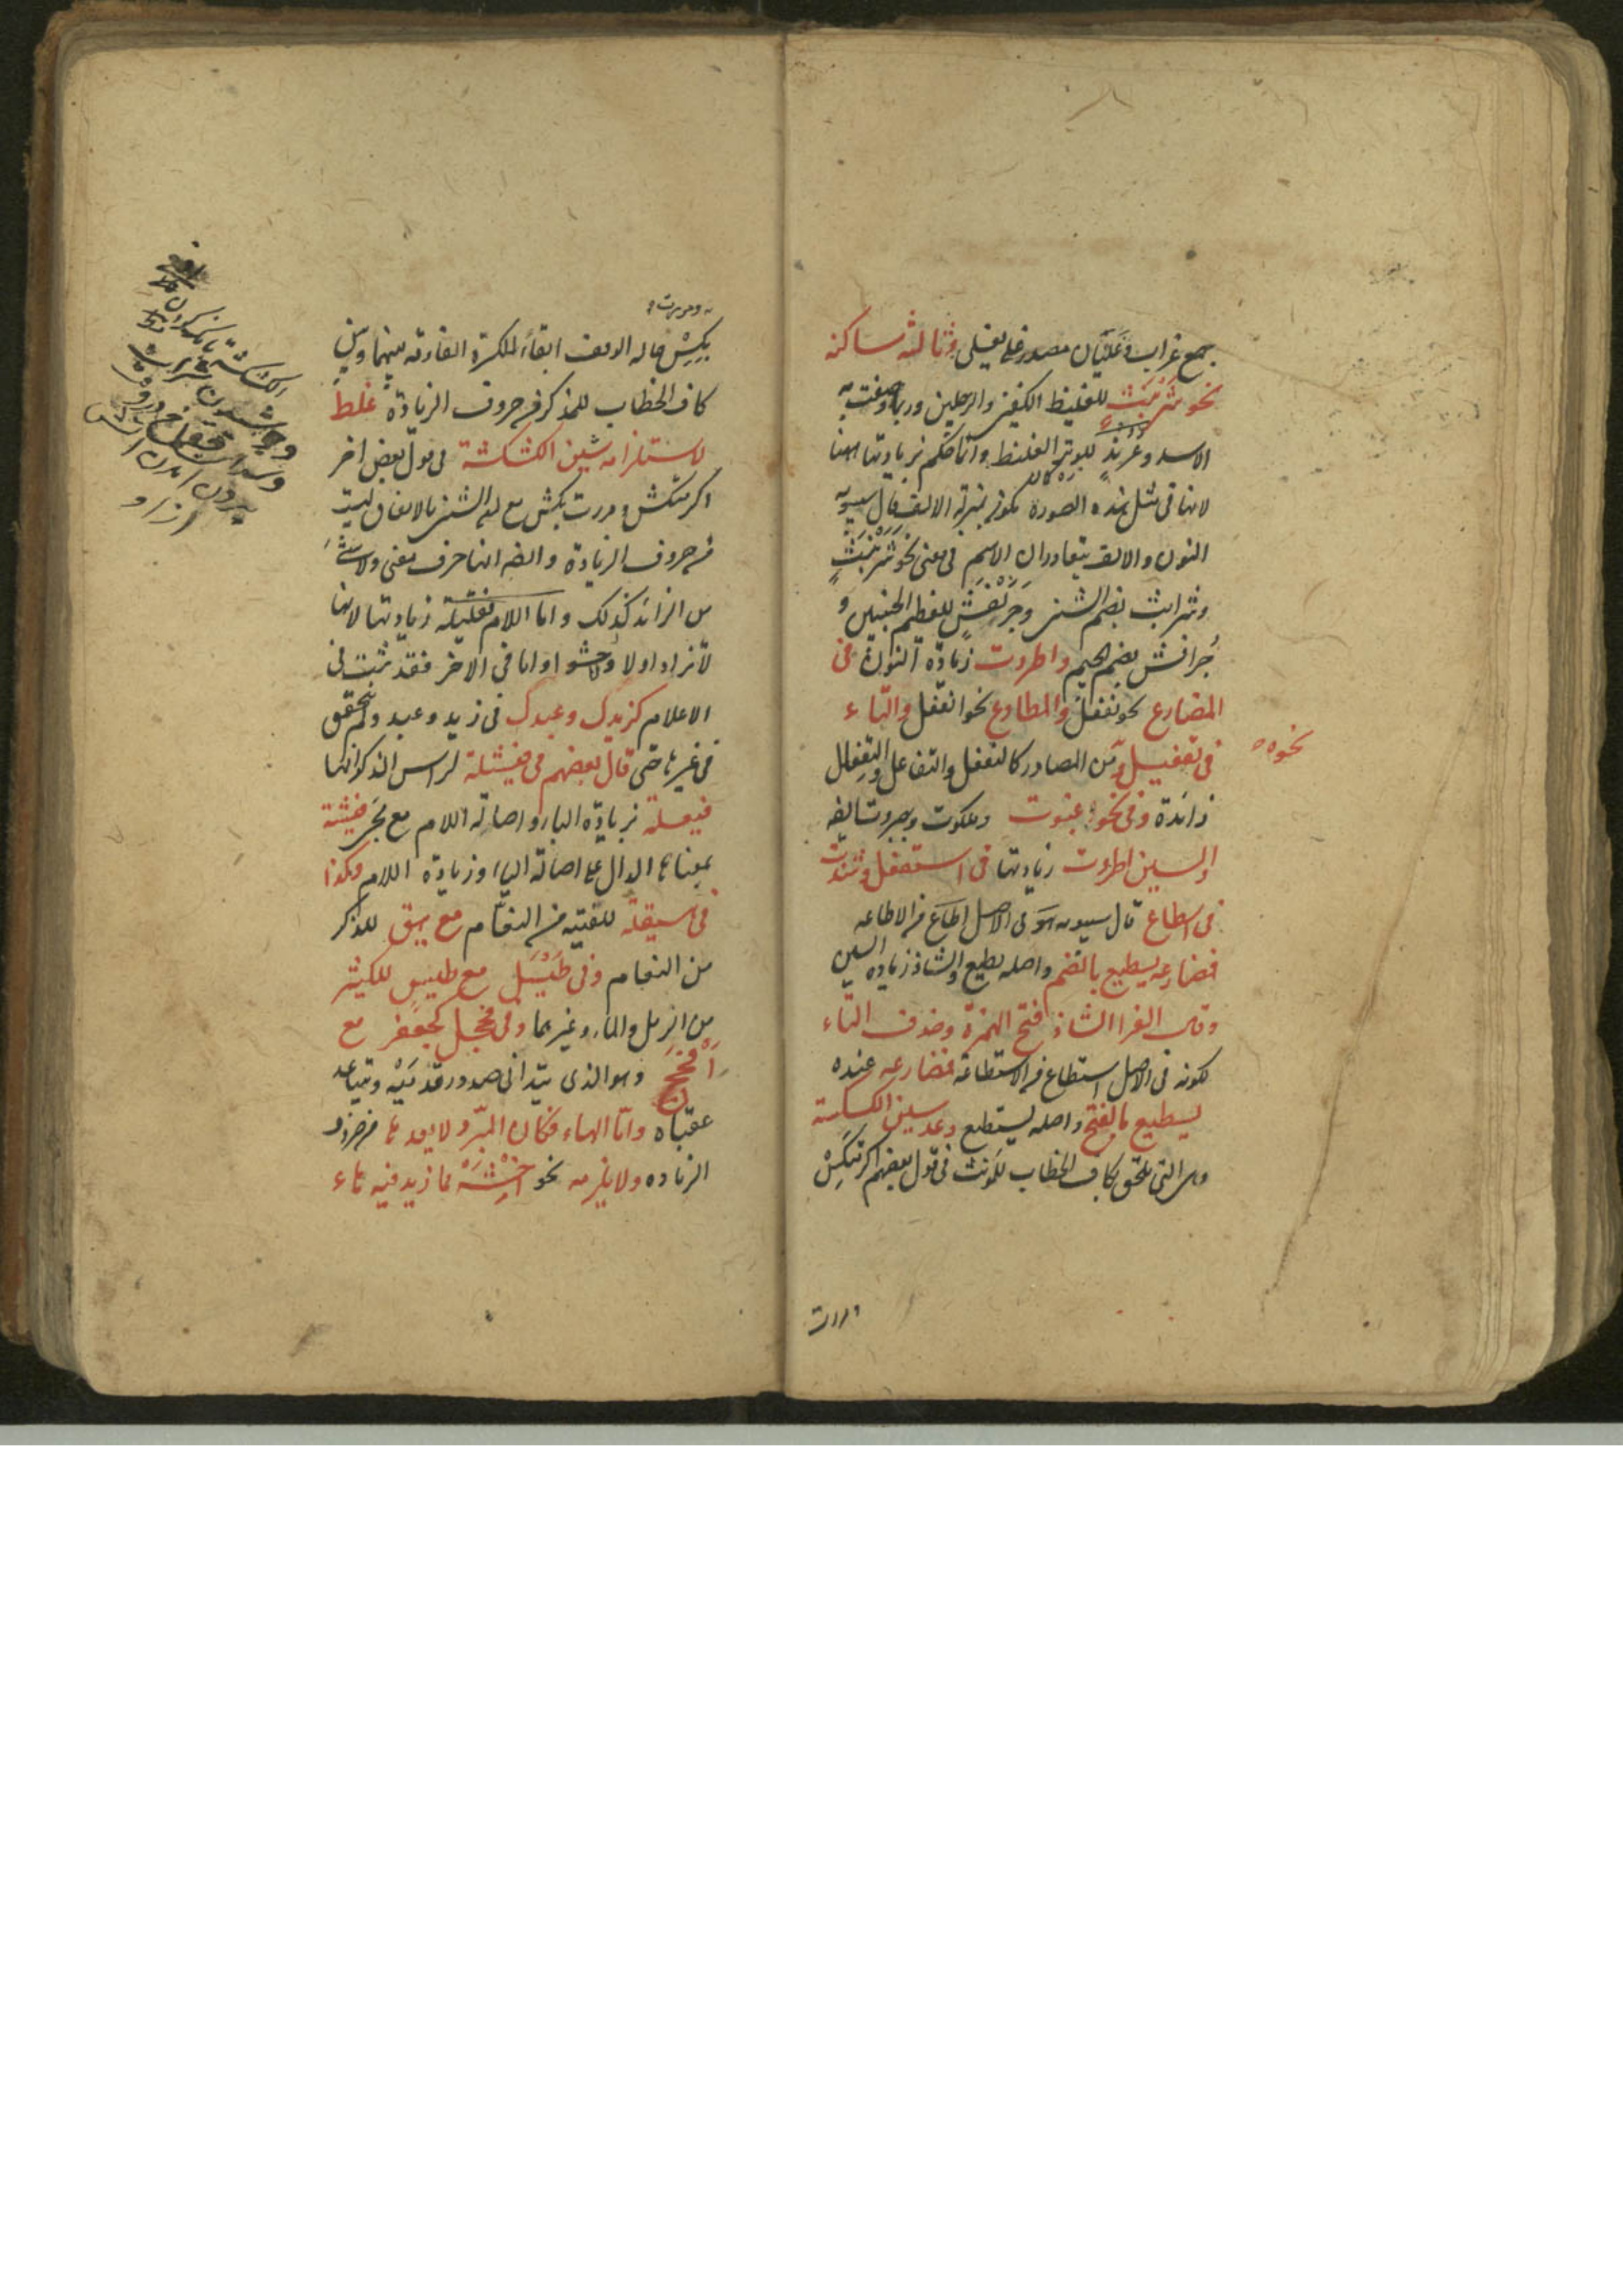 جمع غراب وغليان مصدر غلى يغلى وثالثه ساكنه
نحو شرنبث للغليظ الكفين والرجلين وربما وصفت به
الاسد وعرند للوتر الغليظ وانما حكم بزيادتها ههنا
لانها فى مثل هذه الصورة تكون بمنزلة الالف قال سيبويه
النون والالف يتعاوران الاسم فى معنى نحو شرنبث
وشرابث بضم الشين وجرنفش للعظيم الجنبين و
جرافش بضم الجيم واطردت زيادة النون فى
المضارع نحو نفعل والمطاوع نحو انفعل والتاء
فى تفعيل ونحوه من المصادر كالتفعل والتفاعل والتفعال
زائدة وفى نحو رغبوت وملكوت وجبروت ايضا
والسين اطردت زيادتها فى استفعل وشذت
فى اسطاع قال سيبويه هو فى الاصل اطاع من الاطاعه
فمضارعه يسطيع بالضم واصله يطيع والشاذ زياده السين
وقال الفرا الشاذ فتح الهمزة وحذف التاء
لكونه فى الاصل استطاع من الاستطاعة فمضارعه عنده
يسطيع بالفتح واصله يستطيع وعد سين الكسكسة
وهى التى تلحق بكاف الخطاب للمؤنث فى قول بعضهم اكرمتكس
ومررت
ومررت
بكس حاله الوقف ابقاء للكسرة الفارقه بينهما وبين
كاف الخطاب للمذكر من حروف الزيادة غلط
لاستلزامه شين الكشكشة فى قول بعض اخر
اكرمتكش ومررت بكش مع ان الشين بالاتفاق ليست
من حروف الزيادة وايضا انها حرف معنى ولا شئ
من الزائد كذلك واما اللام فقليلة زيادتها لانها
لا تزاد اولا ولا حشوا واما فى الاخر فقد ثبت فى
الاعلام كزيدل وعبدل فى زيد وعبد ولم يتحقق
فى غيرها حتى قال بعضهم فى فيشلة لراس الذكر انها
فيعلة بزيادة الياء واصالة اللام مع مجئ فيشة
بمعناها الدال على اصالة الياء وزيادة اللام وكذا
فى هيقلة للفتيه من النعام مع هيق للذكر
من النعام وفى طيسل مع طيس للكثير
من الرمل والماء وغيرهما وفى فحجل كجعفر مع
افحج وهو الذى يتدانى صدور قدميه ويتباعد
عقباه واما الهاء فكان المبرد لا يعدها من حروف
الزياده ولا يلزمه نحو اخشه مما زيد فيه هاء